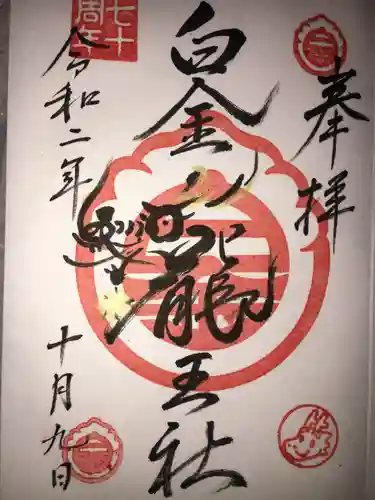 奉拝
白金龍王社
令和二年
十月九日
七十
周年